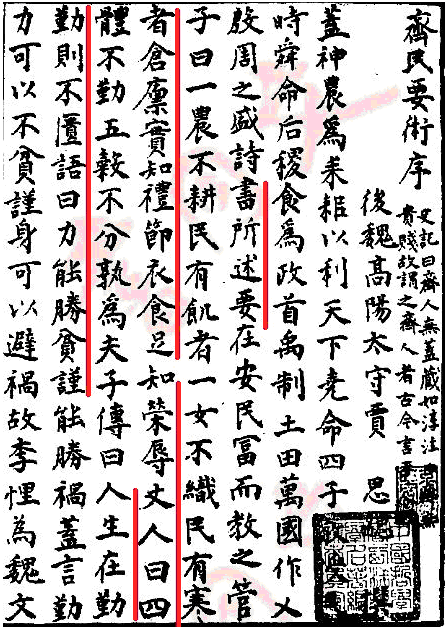 齊民要術序
史記曰齊人無蓋藏如淳注
貴賤故謂之齊人者古今言
後魏髙陽太守賈思
蓋神農爲耒耜以利天下堯命四子
時舜命后稷食爲政首禹制土田萬國作乂
殷周之盛詩書所述要在安民冨而教之管
子曰一農不耕民有飢者一女不織民有寒
者倉廩實知禮節衣食足知榮辱丈人曰四
體不勤五穀不分孰爲夫子傳曰人生在勤
勤則不匱語曰力能勝貧謹能勝禍蓋言勤
力可以不貧謹身可以避禍故李悝為魏文